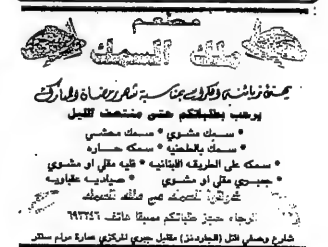 مطعم
ملك السمك
يهنئ زبائنه الكرام بمناسبة شهر رمضان المبارك
يرحب بطلباتكم حتى منتصف الليل
* سمك مشوي * سمك محشي
* سمك بالطحنيه * سمكه حاره
* سمكه على الطريقه اللبنانيه * فليه مقلي او مشوي
* جمبري مقلي او مشوي * صياديه عكاويه
من ملك السمك
الرجاء حجز طلباتكم مسبقا هاتف ٦٩٣٣٤٦
شارع وصفي التل (الجاردنز) مقابل جبري المركزي عمارة مرام سنتر